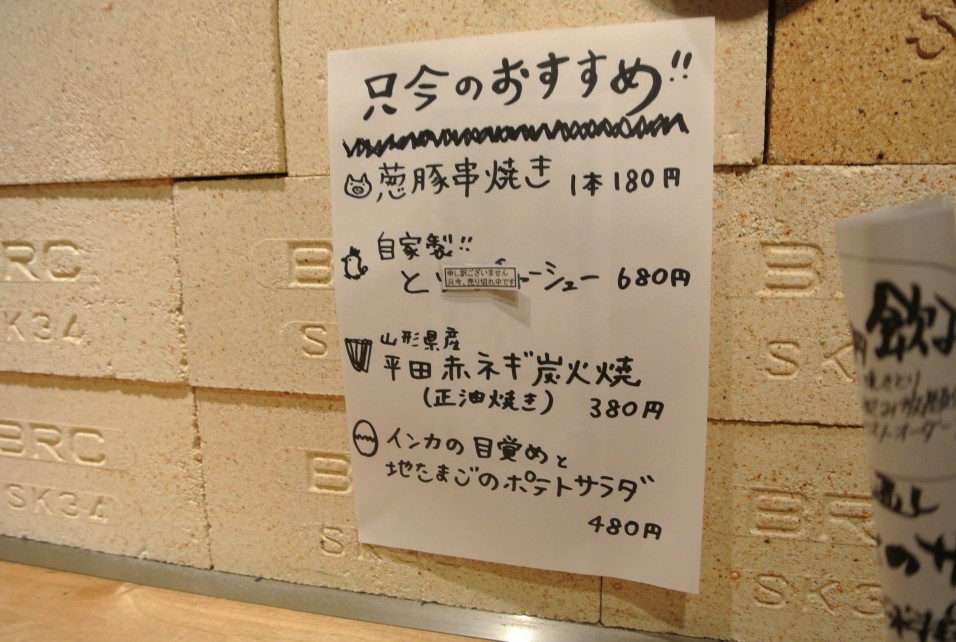 只今のおすすめ!!
葱豚串焼き 1本 180円
自家製!!
と ーシュー 680円
申し訳ございません
只今、売り切れ中です
山形県産
平田赤ネギ炭火焼
(正油焼き) 380円
インカの目覚めと
地たまごのポテトサラダ
480円
BRC
SK34
BRC
SK34
B
S
B
SK
B
SK
BR
SK3
飲
オーダー
のサ